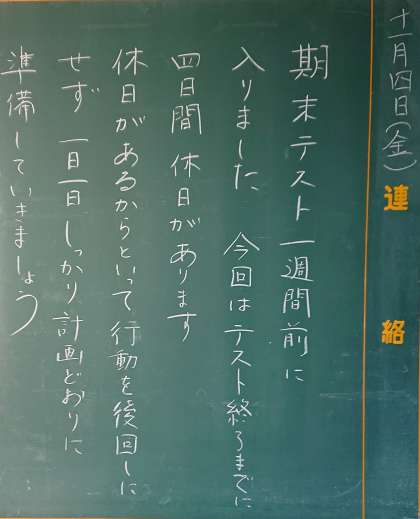 十一月四日(金)
連絡
期末テスト一週間前に
入りました 今回はテスト終るまでに
四日間 休日があります
休日があるからといって行動を後回しに
せず 一日一日しっかり計画どおりに
準備していきましょう